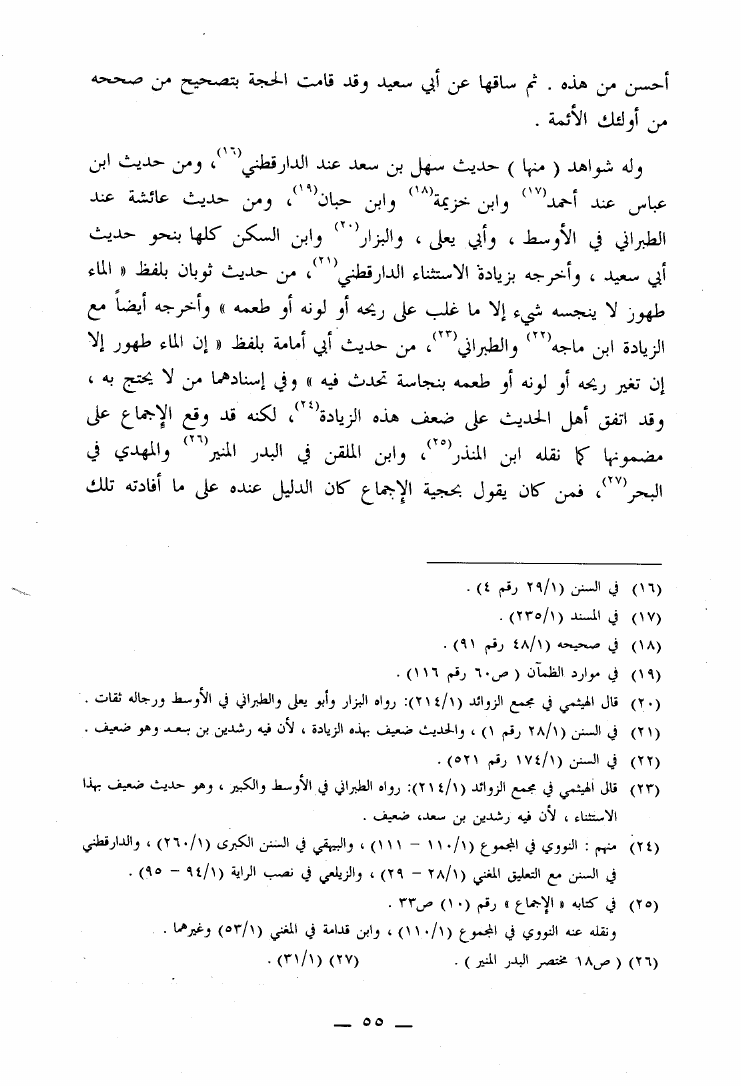 أحسن من هذه . ثم ساقها عن أبي سعيد وقد قامت الحجة بتصحيح من صححه
من أولئك الأئمة .
وله شواهد ( منها ) حديث سهل بن سعد عند الدارقطني(١٦)، ومن حديث ابن
عباس عند أحمد(١٧) وابن خزيمة(١٨) وابن حبان(١٩)، ومن حديث عائشة عند
الطبراني في الأوسط ، وأبي يعلى ، والبزار(٢٠) وابن السكن كلها بنحو حديث
أبي سعيد ، وأخرجه بزيادة الاستثناء الدارقطني(٢١)، من حديث ثوبان بلفظ « الماء
طهور لا ينجسه شيء إلا ما غلب على ريحه أو لونه أو طعمه » وأخرجه أيضاً مع
الزيادة ابن ماجه(٢٢) والطبراني(٢٣)، من حديث أبي أمامة بلفظ « إن الماء طهور إلا
إن تغير ريحه أو لونه أو طعمه بنجاسة تحدث فيه » وفي إسنادهما من لا يحتج به ،
وقد اتفق أهل الحديث على ضعف هذه الزيادة(٢٤)، لكنه قد وقع الإجماع على
مضمونها كما نقله ابن المنذر(٢٥)، وابن الملقن في البدر المنير(٢٦) والمهدي في
البحر(٢٧)، فمن كان يقول بحجية الإجماع كان الدليل عنده على ما أفادته تلك
(١٦) في السنن (٢٩/١ رقم ٤) .
(١٧) في المسند (٢٣٥/١) .
(١٨) في صحيحه (٤٨/١ رقم ٩١) .
(١٩) في موارد الظمآن ( ص٦٠ رقم ١١٦) .
(٢٠) قال الهيثمي في مجمع الزوائد (٢١٤/١): رواه البزار وأبو يعلى والطبراني في الأوسط ورجاله ثقات .
(٢١) في السنن (٢٨/١ رقم ١) ، والحديث ضعيف بهذه الزيادة ، لأن فيه رشدين بن سعد وهو ضعيف .
(٢٢) في السنن (١٧٤/١ رقم ٥٢١) .
(٢٣) قال الهيثمي في مجمع الزوائد (٢١٤/١): رواه الطبراني في الأوسط والكبير ، وهو حديث ضعيف بهذا
الاستثناء ، لأن فيه رشدين بن سعد، ضعيف .
(٢٤) منهم : النووي في المجموع (١١٠/١ – ١١١) ، والبيهقي في السنن الكبرى (٢٦٠/١) ، والدارقطني
في السنن مع التعليق المغني (٢٨/١ – ٢٩) ، والزيلعي في نصب الراية (٩٤/١ – ٩٥) .
(٢٥) في كتابه « الإجماع » رقم (١٠) ص٣٣ .
ونقله عنه النووي في المجموع (١١٠/١) ، وابن قدامة في المغني (٥٣/١) وغيرهما .
(٢٦) ( ص١٨ مختصر البدر المنير ) . (٢٧) (٣١/١) .
— ٥٥ —